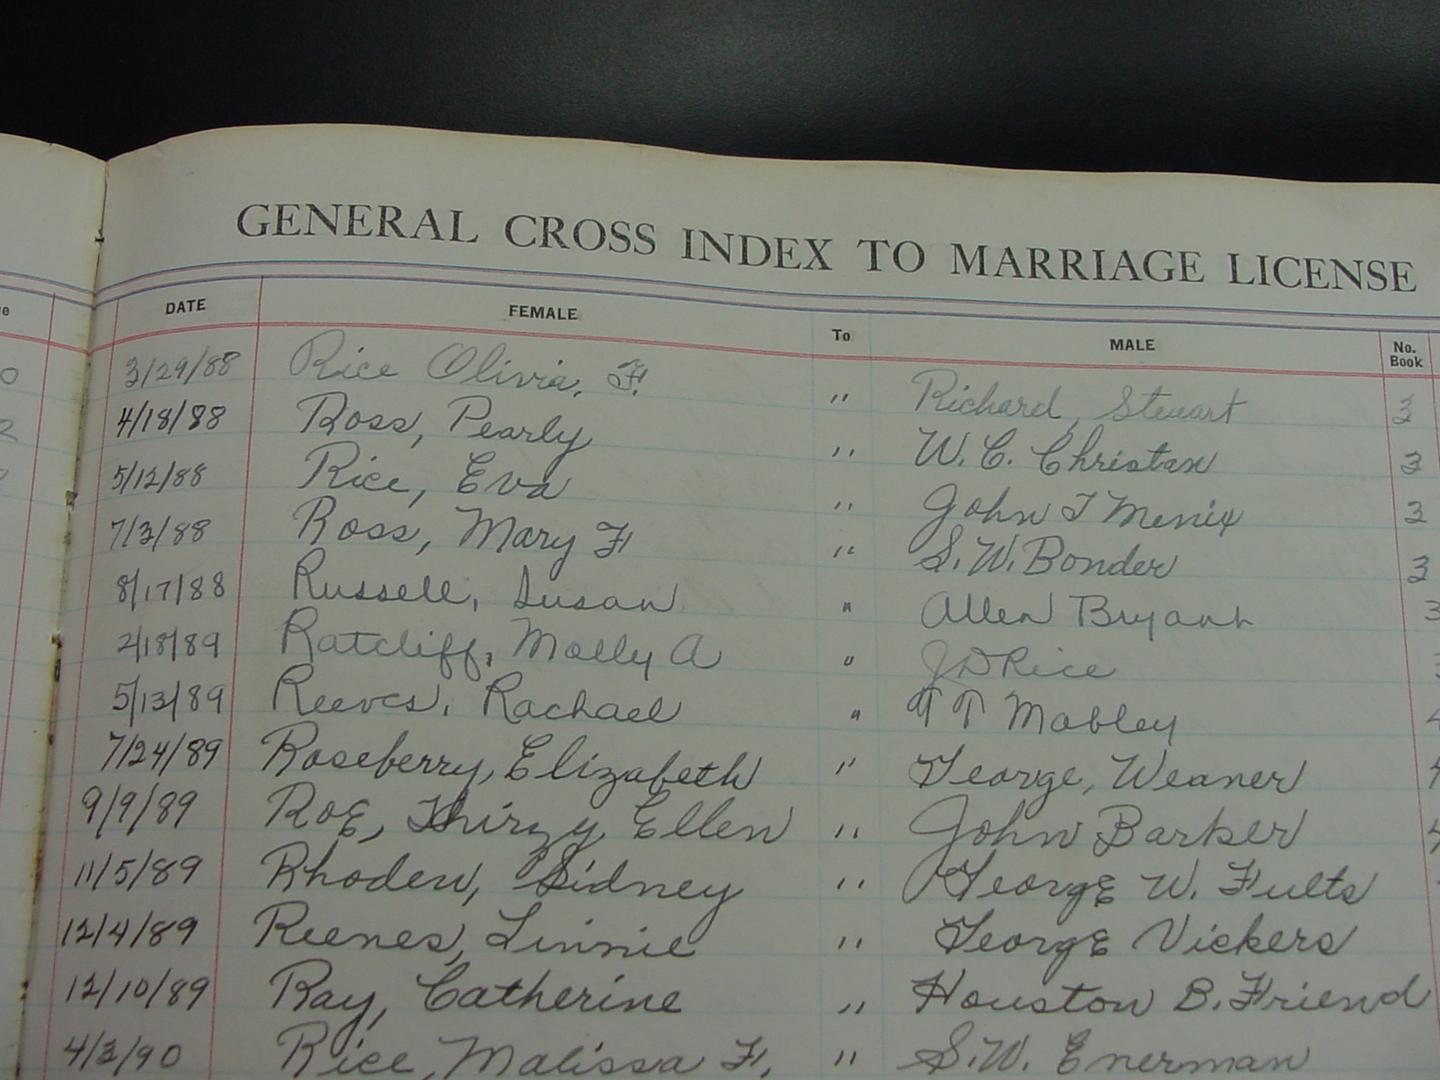 GENERAL CROSS INDEX TO MARRIAGE LICENSE
DATE FEMALE To MALE No. Book
3/29/88 Rice Olivia, F. " Richard, Steuart 3
4/18/88 Ross, Pearly " W. C. Christan 3
5/12/88 Rice, Eva " John T Menix 3
7/3/88 Ross, Mary F " S. W. Bonder 3
8/17/88 Russell, Susan " Allen Bryant 3
2/18/89 Ratcliff, Molly A " J D Rice 3
5/13/89 Reeves, Rachael " T T Mobley 4
7/24/89 Roseberry, Elizabeth " George, Weaner 4
9/9/89 Roe, Thirzy Ellen " John Barker 4
11/5/89 Rhoden, Sidney " George W. Fults
12/4/89 Reenes, Linnie " George Vickers
12/10/89 Ray, Catherine " Houston B. Friend
4/3/90 Rice, Malissa F. " S. W. Enerman